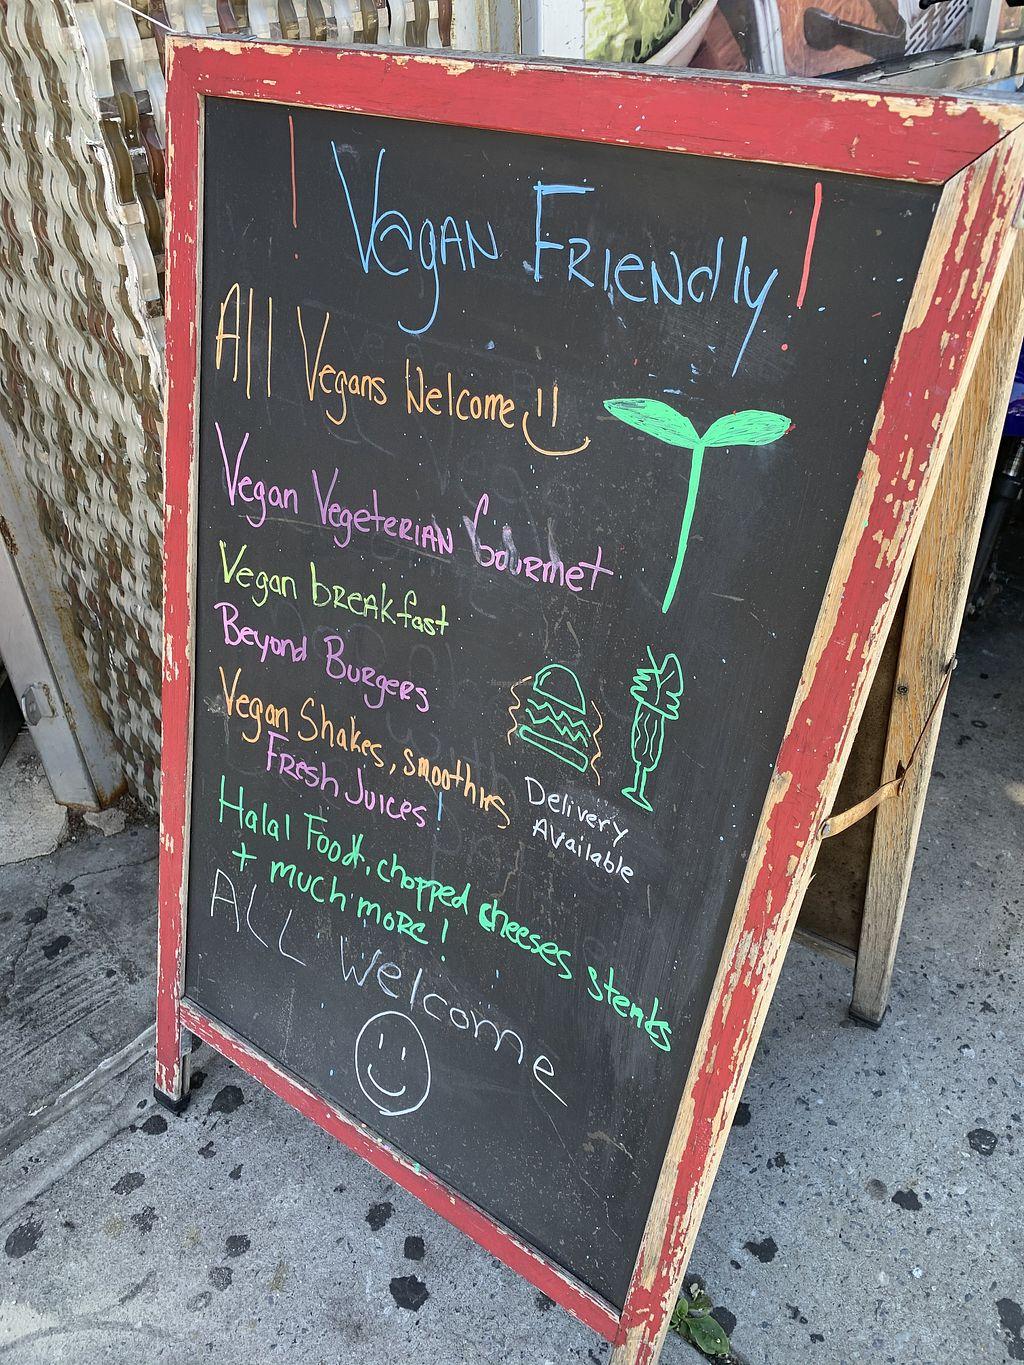 ! Vegan Friendly !
All Vegans Welcome
Vegan Vegeterian Gourmet
Vegan breakfast
Beyond Burgers
Vegan Shakes, smoothies
Fresh Juices!
Delivery
Available
Halal Food, chopped cheeses steaks
+ much more!
ALL Welcome